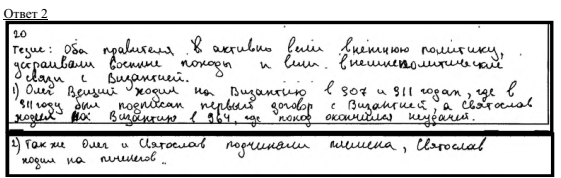 Ответ 2
20
Тезис: Оба правителя активно вели внешнюю политику,
устраивали военные походы и вели внешнеполитические
связи с Византией.
1) Олег Вещий ходил на Византию в 907 и 911 годах, где в
911 году был подписан первый договор с Византией, а Святослав
ходил на Византию в 964, где поход окончился неудачей.
2) Также Олег и Святослав подчинили племена, Святослав
ходил на печенегов.